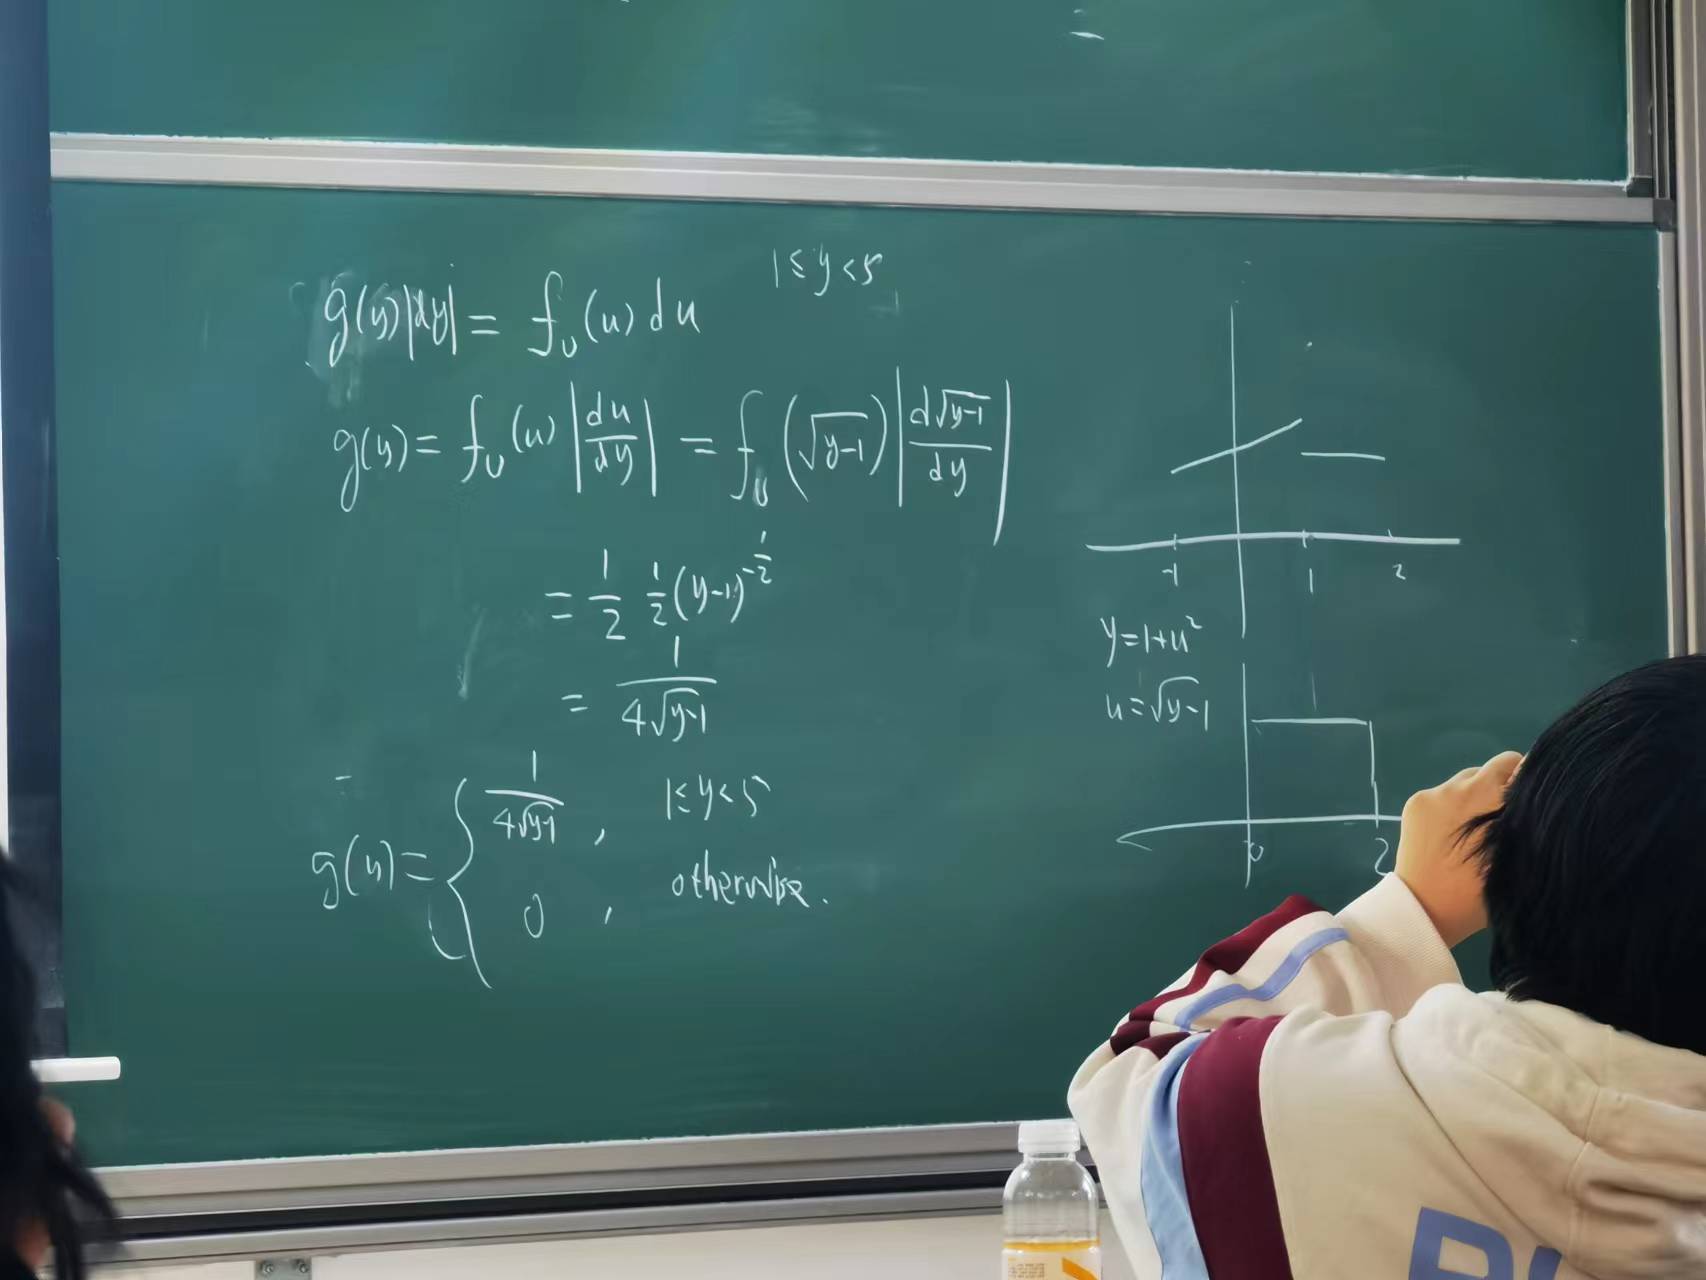 1 ≤ y < 5
g(y)|dy| = f_U(u) du
g(y) = f_U(u) |du/dy| = f_U(√(y-1)) |d√(y-1)/dy|
= 1/2 1/2 (y-1)^(-1/2)
= 1/(4√(y-1))
g(y) = { 1/(4√(y-1)) , 1 ≤ y < 5
0 , otherwise.
-1 1 2
y = 1+u²
u = √(y-1)
0 2